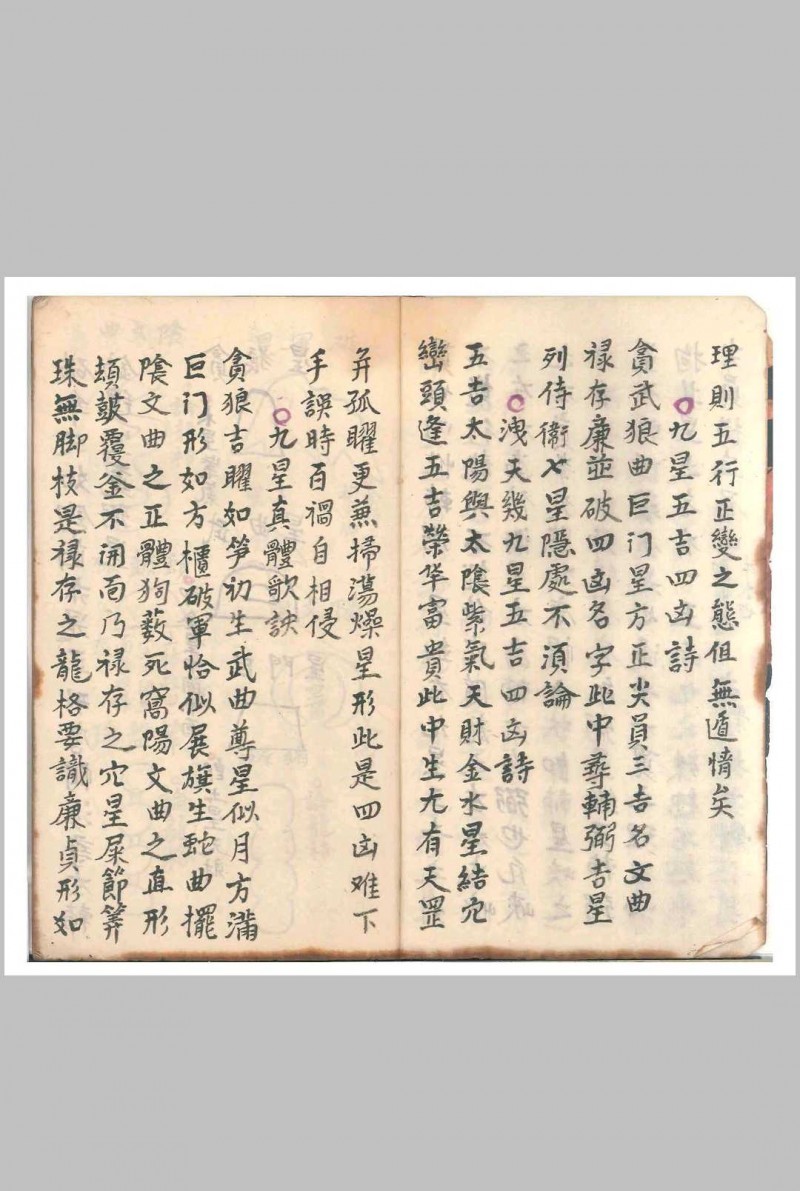 理則五行正變之態但無遁情矣
九星五吉四凶詩
貪武狼曲巨门星方正尖員三吉名文曲
禄存廉並破四凶名字此中尋輔弼吉星
列侍衞七星隱處不須論
洩天幾九星五吉四凶詩
五吉太陽與太隂紫氣天財金水星結穴
巒頭逢五吉榮华富貴此中生尢有天罡
并孤曜更兼掃蕩燥星形此是四凶难下
手誤時百禍自相侵
九星真體歌訣
貪狼吉曜如笋初生武曲尊星似月方滿
巨门形如方櫃破軍恰似展旗生蛇曲擺
隂文曲之正體狗薮死窩陽文曲之直形
頓皷覆釜不讲而乃禄存之穴星屎節箅
珠無脚枝是禄存之龍格要識廉貞形如